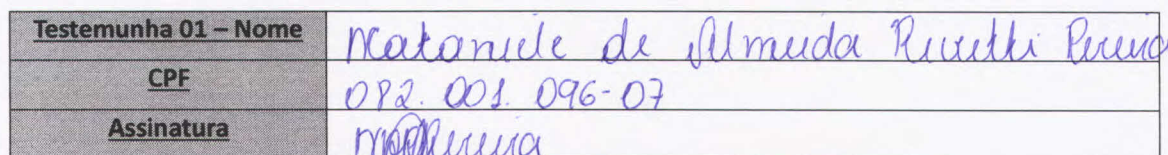 Testemunha 01 – Nome Nataniele de Almeida Rivetti Pereira
CPF 082.001.096-07
Assinatura